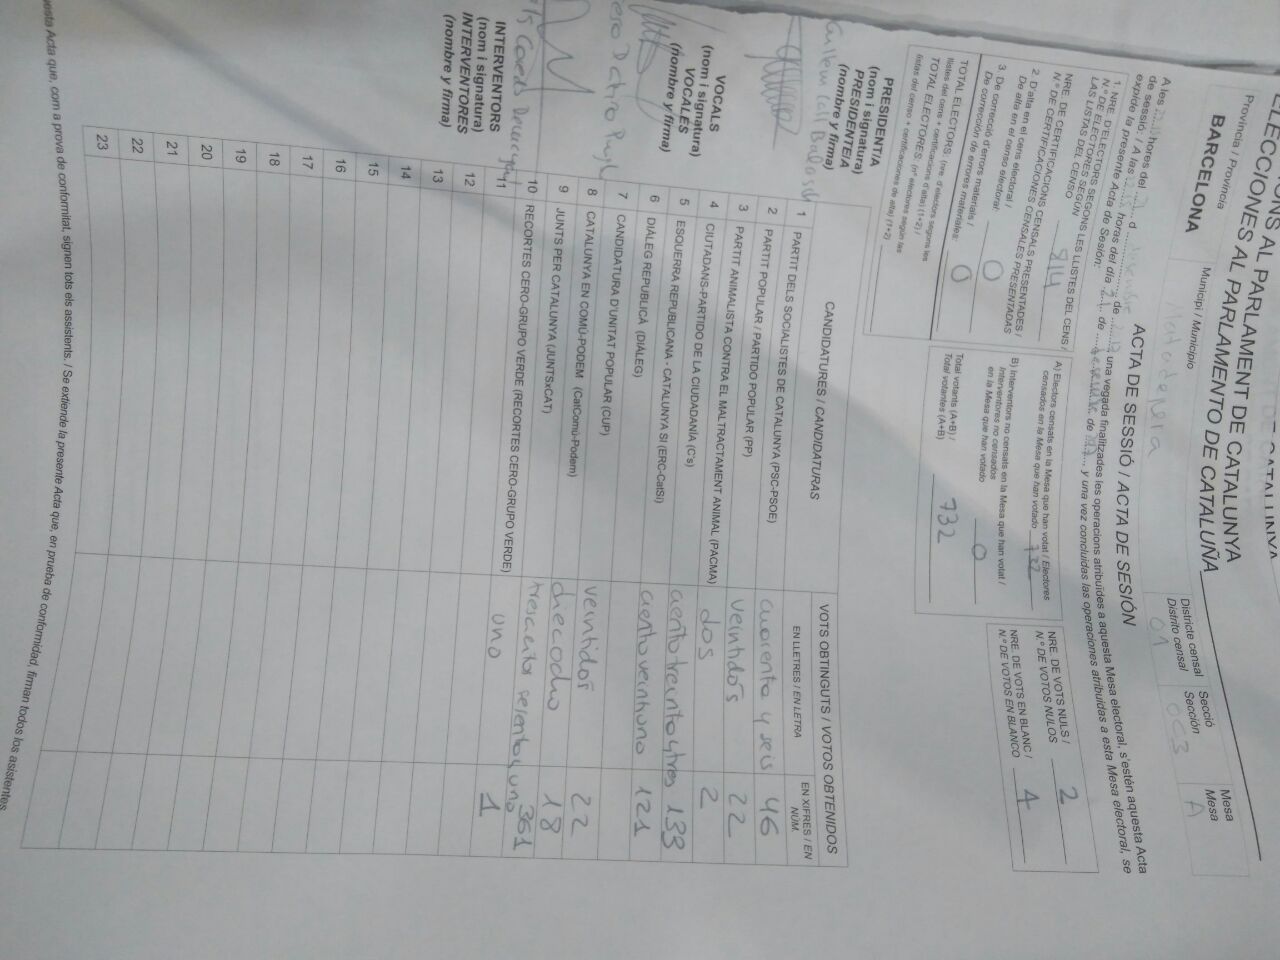 ELECCIONES AL PARLAMENT DE CATALUNYA
ELECCIONES AL PARLAMENTO DE CATALUÑA
Província / Provincia
BARCELONA
Municipi / Municipio
Matadepera
Districte censal
Distrito censal
01
Secció
Sección
003
Mesa
Mesa
A
ACTA DE SESSIÓ / ACTA DE SESIÓN
A les hores del d de una vegada finalitzades les operacions atribuïdes a aquesta Mesa electoral, s'estén aquesta Acta
de sessió: / A las horas del día 21 de de y una vez concluidas las operaciones atribuidas a esta Mesa electoral, se
expide la presente Acta de Sesión:
1. NRE. D'ELECTORS SEGONS LES LLISTES DEL CENS /
N.º DE ELECTORES SEGÚN
LAS LISTAS DEL CENSO
914
NRE. DE CERTIFICACIONS CENSALS PRESENTADES /
N.º DE CERTIFICACIONES CENSALES PRESENTADAS
2. D'alta en el cens electoral /
De alta en el censo electoral:
0
3. De correcció d'errors materials /
De corrección de errores materiales:
0
TOTAL ELECTORS: (nre. d'electors segons les
llistes del cens + certificacions d'alta) (1+2) /
TOTAL ELECTORES: (nº electores según las
listas del censo + certificaciones de alta) (1+2)
A) Electors censats en la Mesa que han votat / Electores
censados en la Mesa que han votado 732
B) Interventors no censats en la Mesa que han votat /
Interventores no censados
en la Mesa que han votado
0
Total votants (A+B) /
Total votantes (A+B)
732
NRE. DE VOTS NULS /
N.º DE VOTOS NULOS 2
NRE. DE VOTS EN BLANC /
N.º DE VOTOS EN BLANCO 4
PRESIDENT/A
(nom i signatura)
PRESIDENTE/A
(nombre y firma)
VOCALS
(nom i signatura)
VOCALES
(nombre y firma)
INTERVENTORS
(nom i signatura)
INTERVENTORES
(nombre y firma)
CANDIDATURES / CANDIDATURAS
VOTS OBTINGUTS / VOTOS OBTENIDOS
EN LLETRES / EN LETRA
EN XIFRES / EN NÚM.
1 PARTIT DELS SOCIALISTES DE CATALUNYA (PSC-PSOE) cuarenta y seis 46
2 PARTIT POPULAR / PARTIDO POPULAR (PP) veintidós 22
3 PARTIT ANIMALISTA CONTRA EL MALTRACTAMENT ANIMAL (PACMA) dos 2
4 CIUTADANS-PARTIDO DE LA CIUDADANÍA (C's) ciento treinta y tres 133
5 ESQUERRA REPUBLICANA - CATALUNYA SÍ (ERC-CatSí) ciento veintiuno 121
6 DIÀLEG REPUBLICÀ (DIÀLEG)
7 CANDIDATURA D'UNITAT POPULAR (CUP) veintidós 22
8 CATALUNYA EN COMÚ-PODEM (CatComú-Podem) dieciocho 18
9 JUNTS PER CATALUNYA (JUNTSxCAT) trescientos sesenta y uno 361
10 RECORTES CERO-GRUPO VERDE (RECORTES CERO-GRUPO VERDE) uno 1
11
12
13
14
15
16
17
18
19
20
21
22
23
esta Acta que, com a prova de conformitat, signen tots els assistents. / Se extiende la presente Acta que, en prueba de conformidad, firman todos los asistentes.